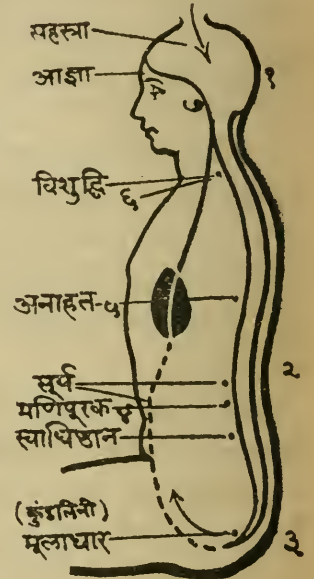 सहस्त्रा
आज्ञा
१
विशुद्धि
६
अनाहत-५
२
सूर्य
मणिपूरक ४
स्वाधिष्ठान
(कुंडलिनी)
मूलाधार
३